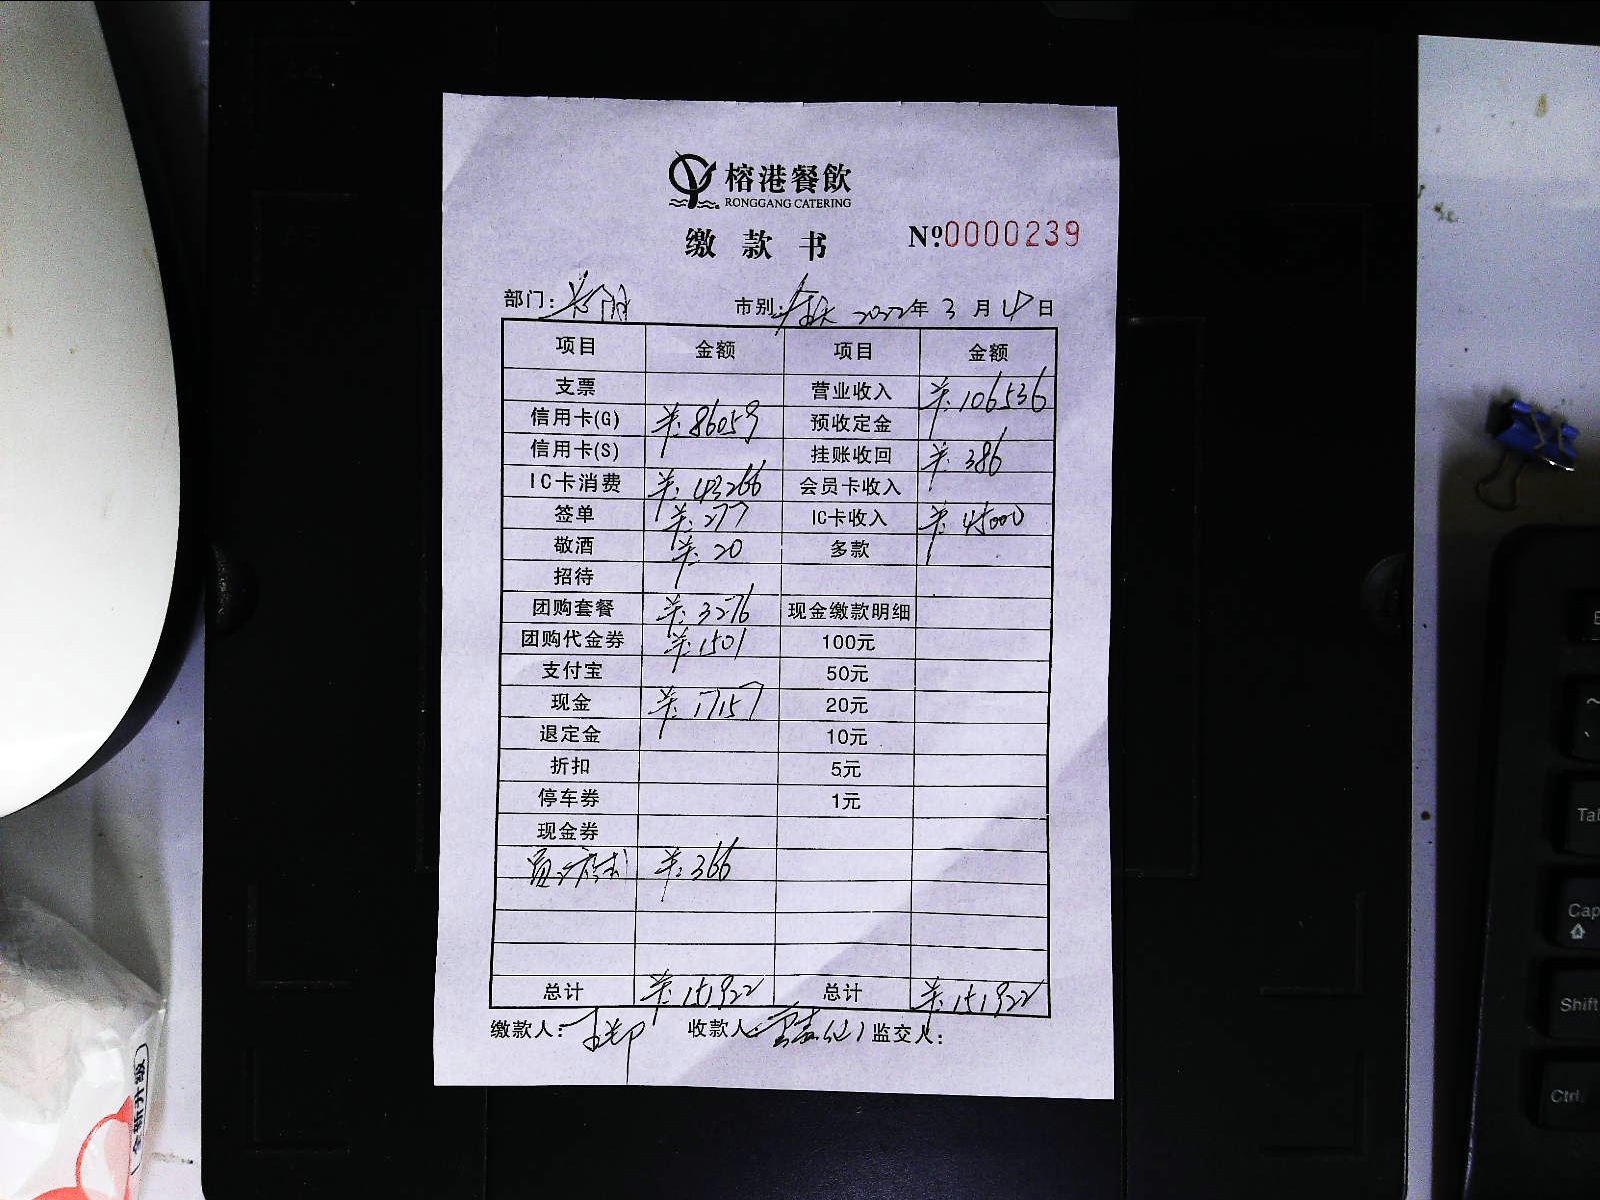 榕港餐飲
RONGGANG CATERING
缴款书 Nº0000239
部门: 市别: 2022年3月4日
项目 金额 项目 金额
支票 营业收入 ¥:106536
信用卡(G) ¥:86059 预收定金
信用卡(S) 挂账收回 ¥:386
IC卡消费 ¥:43266 会员卡收入
签单 ¥:277 IC卡收入 ¥:45000
敬酒 ¥:20 多款
招待
团购套餐 ¥:3276 现金缴款明细
团购代金券 ¥:1501 100元
支付宝 50元
现金 ¥:17157 20元
退定金 10元
折扣 5元
停车券 1元
现金券
¥:366
总计 ¥:151922 总计 ¥:151922
缴款人: 收款人: 监交人:
全新升级
Tab
Cap
Shift
Ctrl